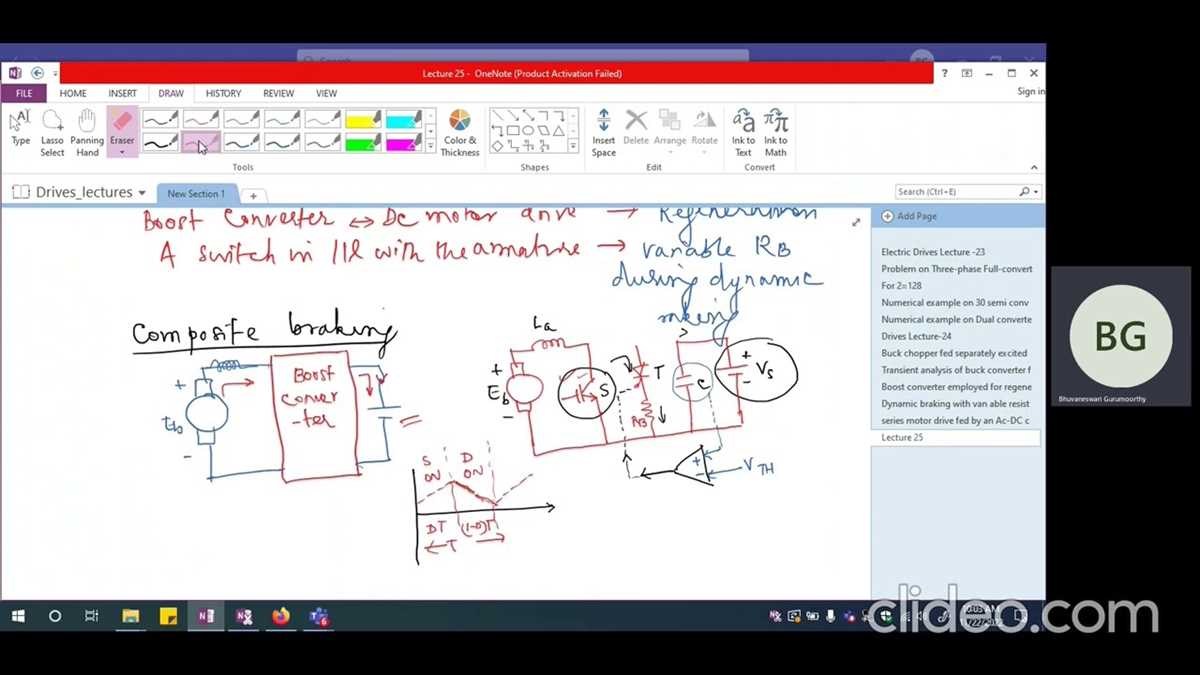 Search
BG
Lecture 25 - OneNote (Product Activation Failed)
?
Sign in
FILE HOME INSERT DRAW HISTORY REVIEW VIEW
Type
Lasso Select
Panning Hand
Eraser
Color & Thickness
Insert Space
Delete
Arrange
Rotate
Ink to Text
Ink to Math
Tools
Shapes
Edit
Convert
Drives_lectures
New Section 1
Search (Ctrl+E)
Add Page
Electric Drives Lecture -23
Problem on Three-phase Full-convert
For 2=128
Numerical example on 30 semi conv
Numerical example on Dual converte
Drives Lecture-24
Buck chopper fed separately excited
Transient analysis of buck converter f
Boost converter employed for regene
Dynamic braking with van able resist
series motor drive fed by an Ac-DC c
Lecture 25
Boost Converter ↔ DC motor drive → Regeneration
A switch in 11l with the armature → variable RB
during dynamic
Composite braking
Boost
Conver
-ter
+
Eb
-
=
La
+
Eb
-
S
T
RB
C
+
-
Vs
+
-
VTH
S ON
D ON
DT
(1-D)T
← T →
BG
Bhuvaneswari Gurumoorthy
clideo.com